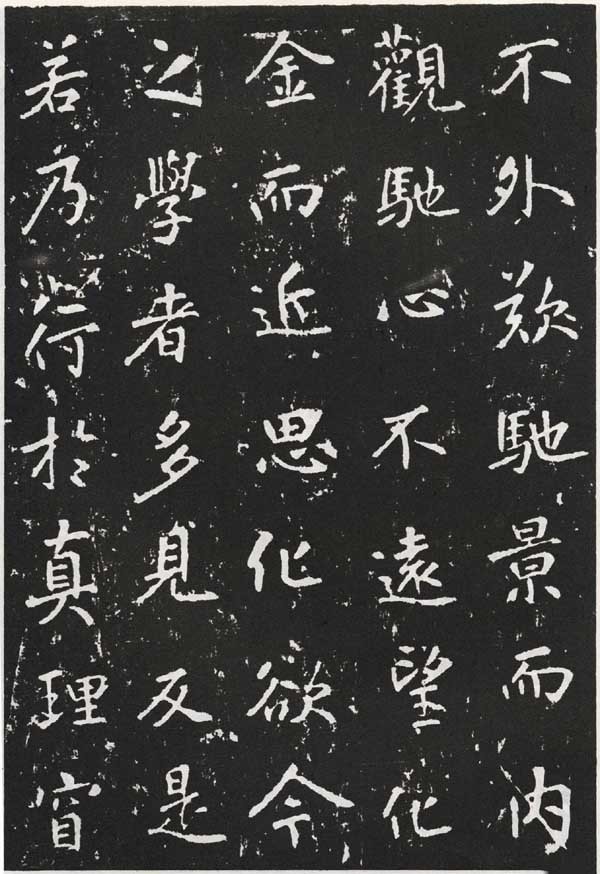 不外歎馳景而内
觀馳心不遠望化
金而近思化欲今
之學者多見反是
若乃荷於真理窅